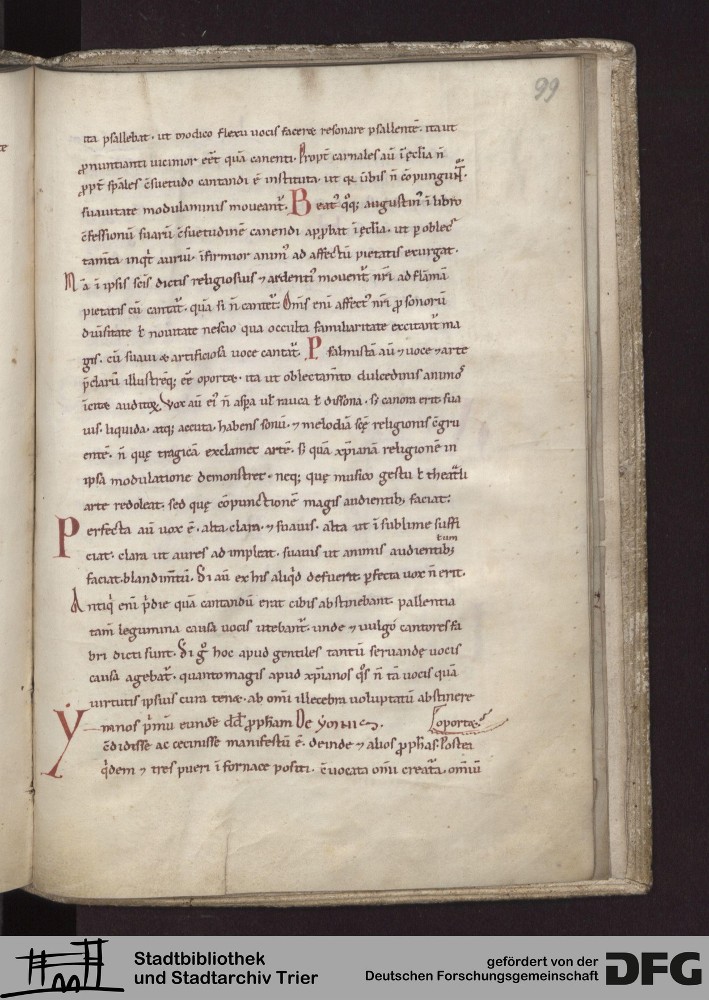 99
ita psallebat· ut modico flexu vocis faceret resonare psallentē· ita ut
ꝓnuntianti vicinior eēt quā canenti· Propt̄ carnales aū ī ęcl̄ia n̄
ꝓpt̄ sp̄ales c̄suetudo cantandi ē instituta· ut qͥ v̄bis n̄ cōpungunt̄·
suavitate modulaminis moveant̄· Beatꝰ qͦq; augustinꝰ ī libro
c̄fessionū suarū c̄suetudinē canendi app̄bat ī ęcl̄ia· ut ꝑ oblec
tam̄ta inqͥt auriū· īfirmior animꝰ ad affectū pietatis exurgat·
Nā ī ipsis sc̄is dictis religiosius ⁊ ardentiꝰ movent̄ nr̄i ad flāmā
pietatis cū cantat̄· quā si n̄ cantet̄· Om̄s eni affectꝰ nr̄i ꝓ sonorū
diūsitate ł novitate nescio qua occulta familiaritate excitant̄ ma
gis· cū suavi & artificiosa voce cantat̄· Psalmistā aū ⁊ voce ⁊ arte
p̄clarū illustrēq; eē oportet· ita ut oblectam̄to dulcedinis animoˢ
īcitet auditoꝝ· Vox aū eiꝰ n̄ asp̄a vł rauca ł dissona· sꝫ canora erit· sua
vis· liquida· atq; accuta· habens sonū· ⁊ melodiā sc̄ę religionis c̄gru
entē· n̄ quę tragicā exclamet artē· sꝫ quā xp̄ianā religionē in
ipsa modulatione demonstret· neq; quę musico gestu ł theat̄li
arte redoleat· sed quę cōpunctionē magis audientibꝫ faciat:
Perfecta aū vox ē· alta· clara· ⁊ suavis· alta ut ī sublime suffi
ciat· clara ut aures adimpleat· suavis ut animis audientibꝫ
faciat· blandim̄tū· Si aū ex his aliqͥd defuerit ꝑfecta vox n̄ erit·
Antiqͥ eni p̄die quā cantandū erat cibis abstinebant· pallentia
tam̄ legumina causa vocis utebant̄· unde ⁊ vulgo cantores fa
bri dicti sunt· Si gͦ hoc apud gentiles tantū servandę vocis
causa agebat̄· quanto magis apud xp̄ianos qͦs n̄ tā vocis quā
virtutis ipsius cura tenet· ab omi illecebra voluptatū abstinere
oportet·
Ymnos pͥmū eunde dd̄ ꝓph̄am De ymnis·
c̄didisse ac cecinisse manifestū ē· deinde ⁊ alios ꝓph̄as· Postea
qͥdem ⁊ tres pueri ī fornace positi· c̄vocata omi creat̄a· omiū
Stadtbibliothek
und Stadtarchiv Trier
gefördert von der
Deutschen Forschungsgemeinschaft
DFG